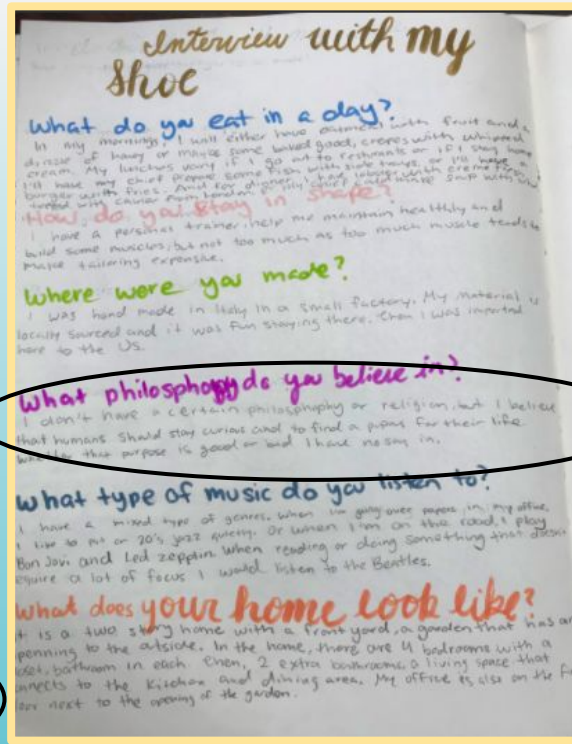 Interview with my
Shoe
What do you eat in a day?
In my mornings, I will either have oatmeal with fruit and a
drizzle of honey or maybe some baked good, crepes with whipped
cream. My lunches vary if I go out to resturants or if I stay home
I'll have my chief prepare some fish with side , or I'll have a
burger with fries. And for dinner, I have lobster with creme
topped with caviar from london. Or my chief could make soup with
How do you stay in shape?
I have a personal trainer, help me maintain healthly and
build some muscles, but not too much as too much muscle tends to
make tailoring expensive.
Where were you made?
I was hand made in Italy in a small factory. My material is
locally sourced and it was fun staying there. Then I was imported
here to the US.
What philosphopy do you believe in?
I don't have a certain philosphophy or religion, but I believe
that humans should stay curious and to find a for their life
that purpose is good or bad I have no say in.
What type of music do you listen to?
I have a mixed type of genres. When I'm going over papers in my office,
I like to put on 20's jazz quietly. Or when I'm on the road, I play
Bon Jovi and Led zepplin. When reading or doing something that doesn't
equire a lot of focus I would listen to the Beatles.
What does your home look like?
It is a two story home with a front yard, a garden that has an
penning to the outside. In the home, there are 4 bedrooms with a
oset, bathroom in each. Then, 2 extra bathrooms, a living space that
nnects to the kitchen and dining area. My office is also on the fi
oor next to the opening of the garden.